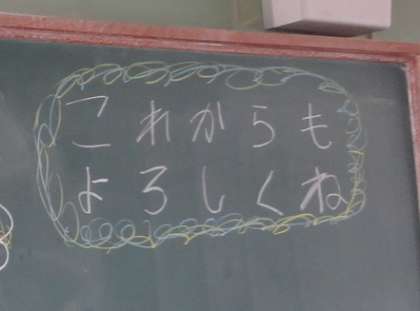 これからも
よろしくね